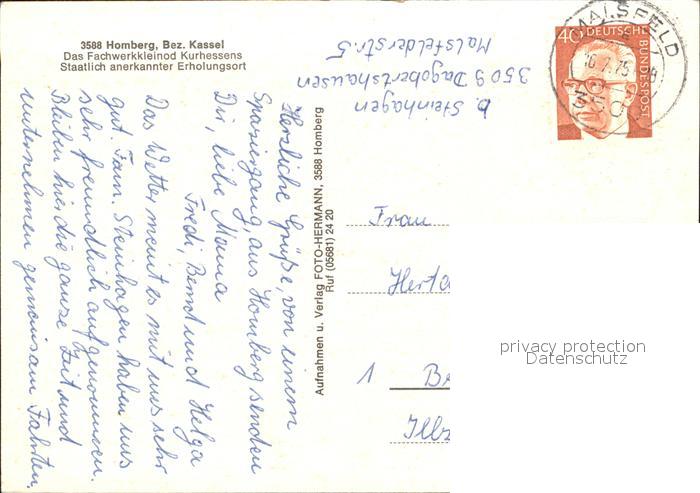 3588 Homberg, Bez. Kassel
Das Fachwerkkleinod Kurhessens
Staatlich anerkannter Erholungsort
Herzliche Grüße von einem
Spaziergang aus Homberg senden
Dir, liebe Mama
Fredi, Bernd und Helga
Das Wetter meint es mit uns sehr
gut. Fam. Steinhagen haben uns
sehr freundlich aufgenommen.
Bleiben hier die ganze Zeit und
unternehmen gemeinsam Fahrten.
Aufnahmen u. Verlag FOTO-HERMANN, 3588 Homberg
Ruf (05681) 24 20
b. Steinhagen
3509 Dagobertshausen
Malsfelderstr. 5
MALSFELD
40 DEUTSCHE
BUNDESPOST
Frau
Herta
1 Be
Ilz
privacy protection
Datenschutz